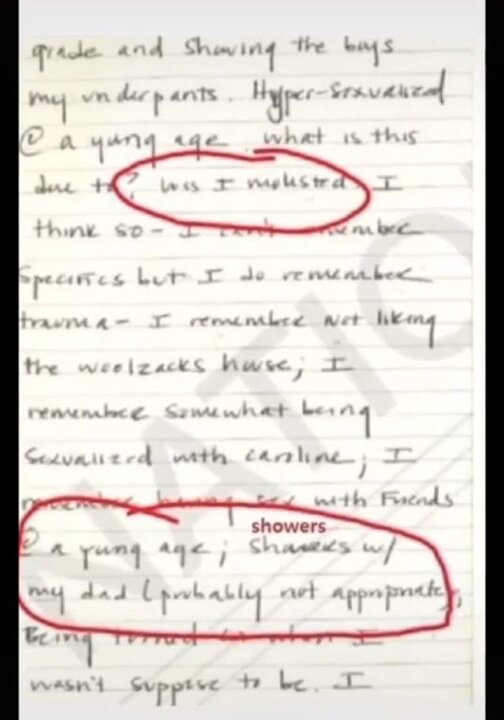 grade and showing the boys
my underpants. Hyper-Sexualized
@ a yung age. what is this
due to? Was I molested. I
think so - I can't remember
Specifics but I do remember
trauma - I remember not liking
the woolzacks house; I
remember somewhat being
Sexualized with caroline; I
remember having sex with Friends
showers
@ a yung age; showers w/
my dad (probably not appropriate).
Being turned on when I
wasn't suppose to be. I
NATIO